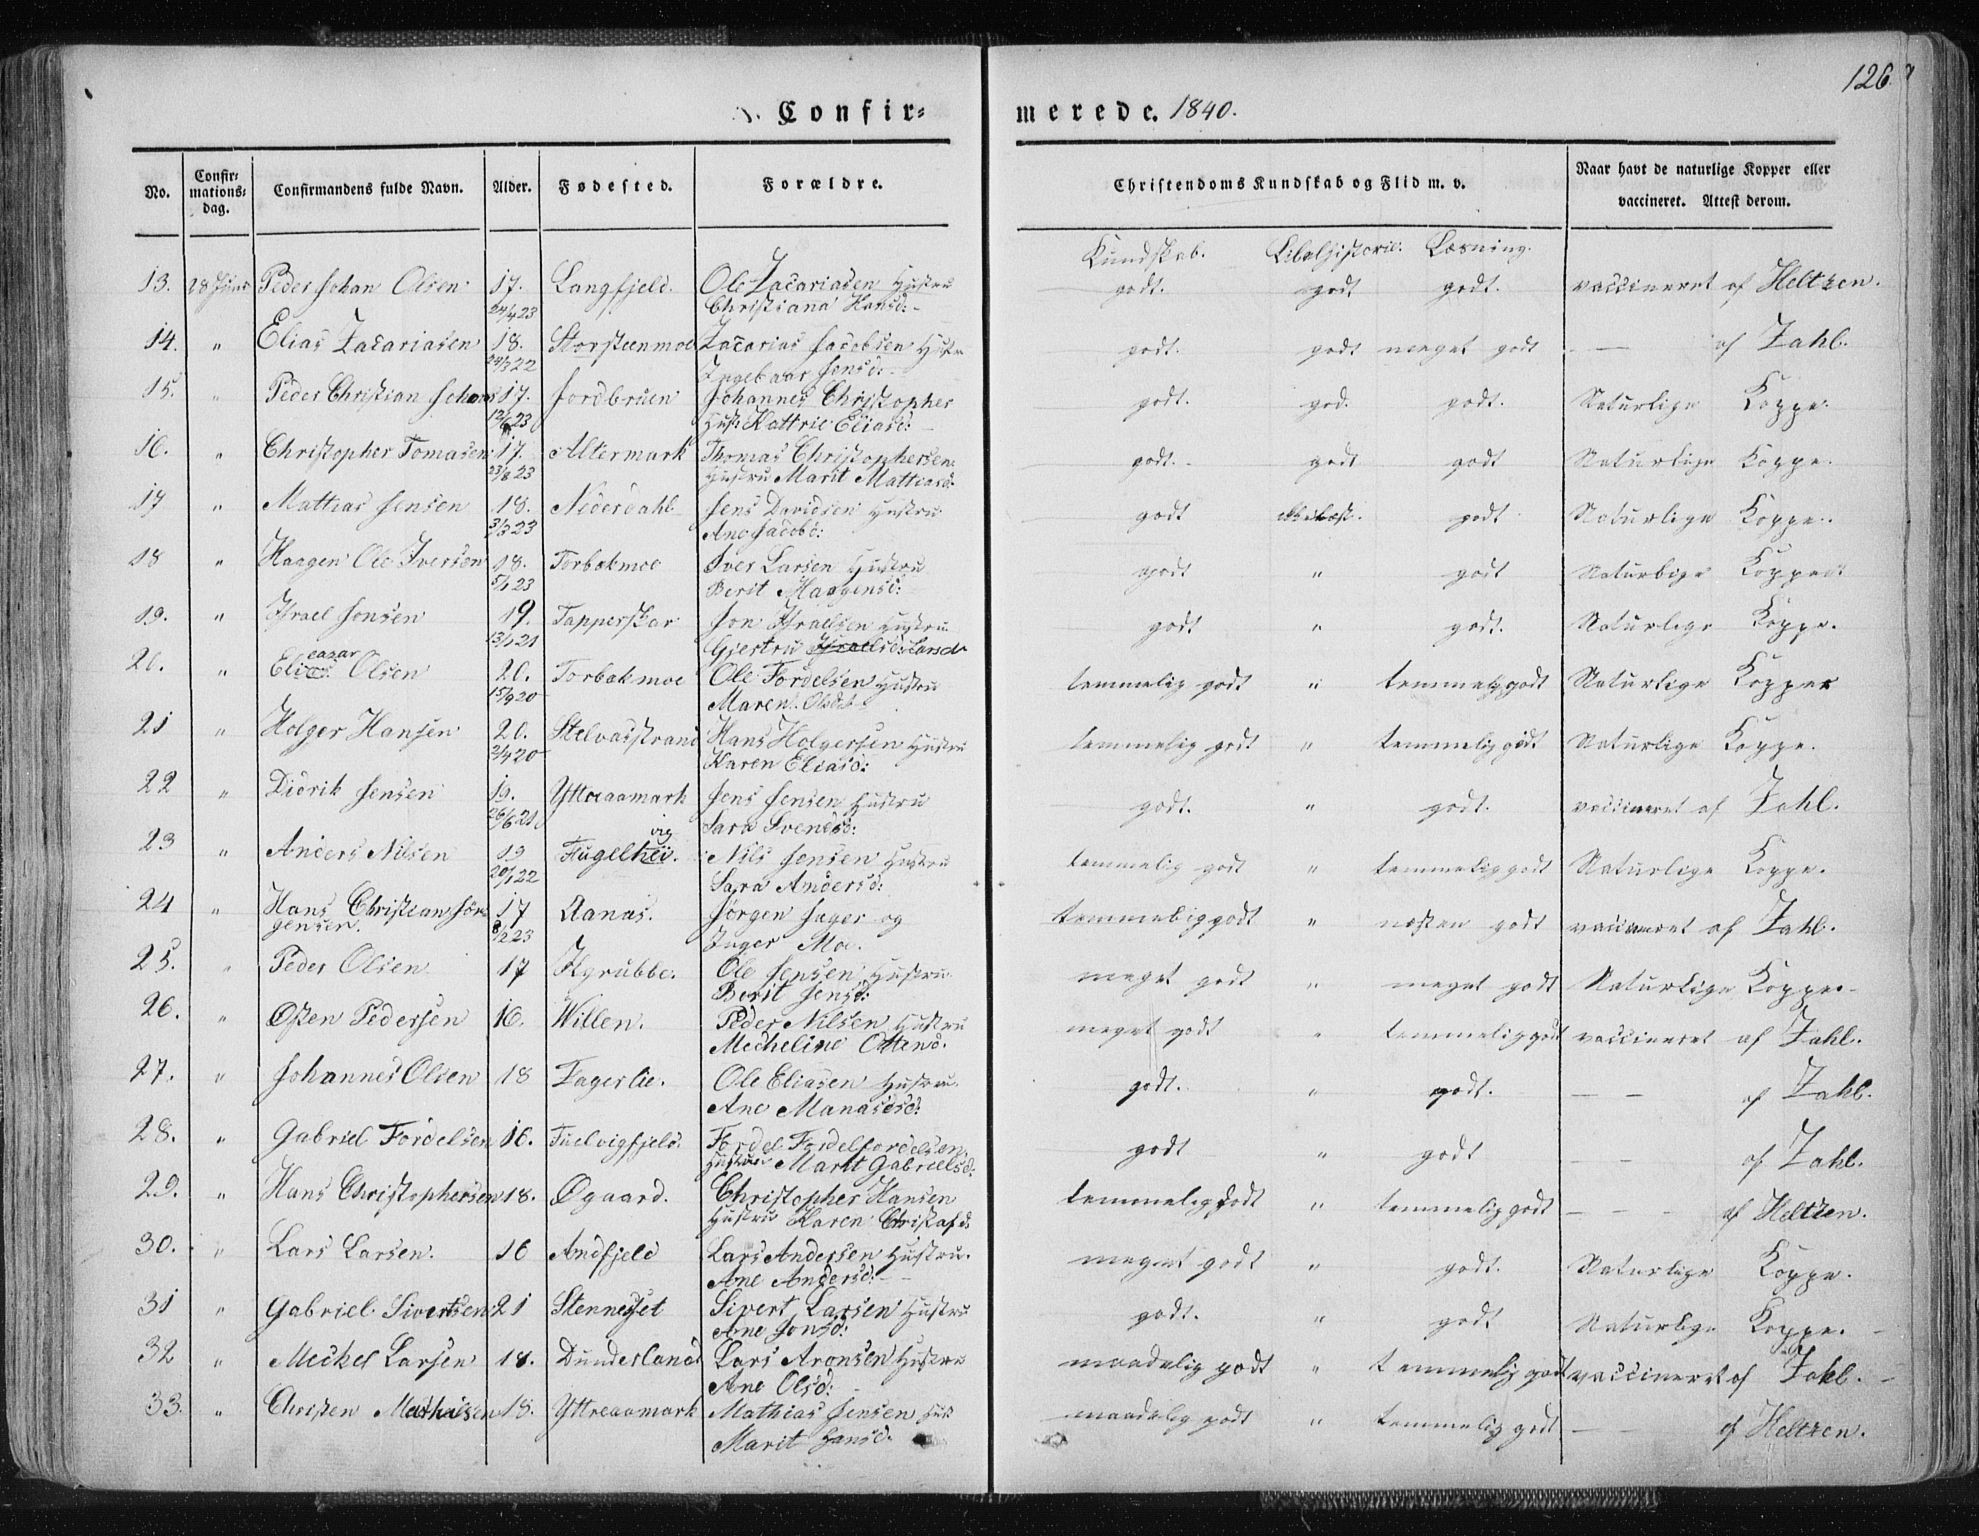 126
Confir=
merede. 1840.
No.
Confir=
mations=
dag.
Confirmandens fulde Navn.
Alder.
Fødested.
Forældre.
Christendoms Kundskab og Flid m. v.
Naar havt de naturlige Kopper eller
vaccineret. Attest derom.
Kundskab. Bibelhistorie. Læsning.
13. 28 Juni Peder Johan Olsen 17. Langfjeld. Ole Zacariasen Hustru godt. godt godt. vaccineret af Heltzen.
24/4 23 Christiana Hansd:
14. " Elias Zacariasen 18. Storsteenmoe Zacarias Jacobsen Hustru godt. godt meget godt — af Zahl.
24/3 22 Ingebaar Jensd:
15. " Peder Christian Johans 17. Jordbruen Johannes Christopher godt. god. godt. Naturlige Koppe.
12/6 23 Hust: Kattrie Eliasd:
16. " Christopher Tomasen 17. Altermark Thomas Christophersen godt. godt godt Naturlige Koppe.
23/8 23 Hustru Marit Mattiasd:
17 " Mattias Jensen 18. Nederdahl Jens Davidsen Hustru godt godt Naturlige Koppe.
3/3 23 Ane Jacobd:
18 " Haagen Ole Iversen 18. Torbakmoe Iver Larsen Hustru godt " godt Naturlige Kopper
5/1 23 Berit Haagensd:
19. " Israel Jonsen 19. Tapperskar Jon Israelsen Hustru godt " godt. Naturlige Koppe.
13/1 21 Gjertru Israelsd: Larsd
20. " Elias eazar Olsen 20. Torbakmoe Ole Fordelsen Hustru temmelig godt " temmelig godt Naturlige Kopper
15/9 20 Maren Olsd:
21 " Holger Hansen 20. Stelvasstrand Hans Holgersen Hustru temmelig godt " temmelig godt Naturlige Koppe.
2/4 20 Karen Eliasd:
22 " Didrik Jensen 19. Yttreaamark Jens Jensen Hustru godt " godt. vaccineret af Zahl.
26/6 21 Sara Svendsd:
23 " Anders Nilsen 19 Fugelhei. vig Nils Jensen Hustru temmelig godt " temmelig godt Naturlige Koppe.
20/1 22 Sara Andersd:
24 " Hans Christian Jör= 17 Ranas. Jørgen Jager og temmelig godt " næsten godt vaccineret af Zahl.
gensen. 8/2 23 Inger Moe.
25. " Peder Olsen 17 Ilgrubbe. Ole Jensen Hustru meget godt " meget godt Naturlige Koppe.
Berit Jensd:
26. " Osten Pedersen 16. Willen. Peder Nilsen Hustru meget godt " temmelig godt vaccineret af Zahl.
Micheline Ottend.
27. " Johannes Olsen 18 Fagerlie. Ole Eliasen Hustru godt. " godt. — — af Zahl.
Ane Manasesd:
28. " Gabriel Fordelsen 16. Tuelvigfjeld. Fordel Fordelfordelsen godt " godt — — af Zahl.
Hustrue Marit Gabrielsd:
29. " Hans Christophersen 18. Øgaard. Christopher Hansen temmelig godt " temmelig godt — — af Heltzen.
Hustru Karen Christafd:
30. " Lars Larsen. 16 Andfjeld Lars Andersen Hustru. meget godt " godt. Naturlige Koppe.
Ane Andersd:
31 " Gabriel Sivertsen 21 Stennesset Sivert Larsen Hustru godt. " godt Naturlige Koppe.
Ane Jonsd:
32 " Mickel Larsen 18. Dunderland Lars Aronsen Hustru maadelig godt " temmelig godt vaccineret af Zahl.
Ane Olsd:
33. " Christen Mathisen 18. Yttreaamark Mathias Jensen Hust maadelig godt " temmelig godt — — af Heltzen.
Marit Hansd.